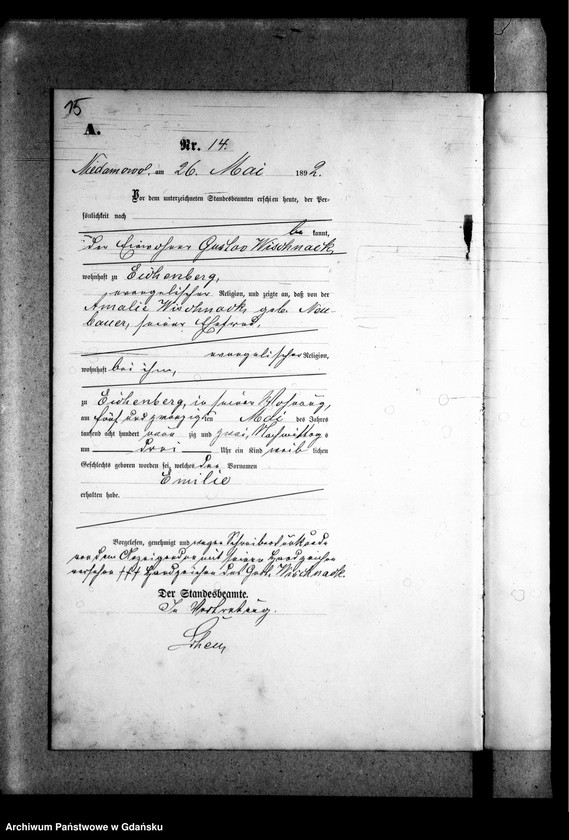 15
A.
Nr. 14.
Niedamowo, am 26. Mai 1892.
Vor dem unterzeichneten Standesbeamten erschien heute, der Per-
sönlichkeit nach
be kannt,
der Einwohner Gustav Wischnack,
wohnhaft zu Eichenberg,
evangelischer Religion, und zeigte an, daß von der
Amalie Wischnack, geb. Neu-
bauer, seiner Ehefrau,
evangelischer Religion,
wohnhaft bei ihm,
zu Eichenberg, in seiner Wohnung,
am fünf und zwanzigsten Mai des Jahres
tausend acht hundert neun zig und zwei, Nachmittags
um drei Uhr ein Kind weib lichen
Geschlechts geboren worden sei, welches den Vornamen
Emilie
erhalten habe.
Vorgelesen, genehmigt und wegen Schreibensunkunde
von dem Anzeigenden mit seinem Handzeichen
versehen +++ Handzeichen des Gust. Wischnack.
Der Standesbeamte.
In Vertretung.
Archiwum Państwowe w Gdańsku